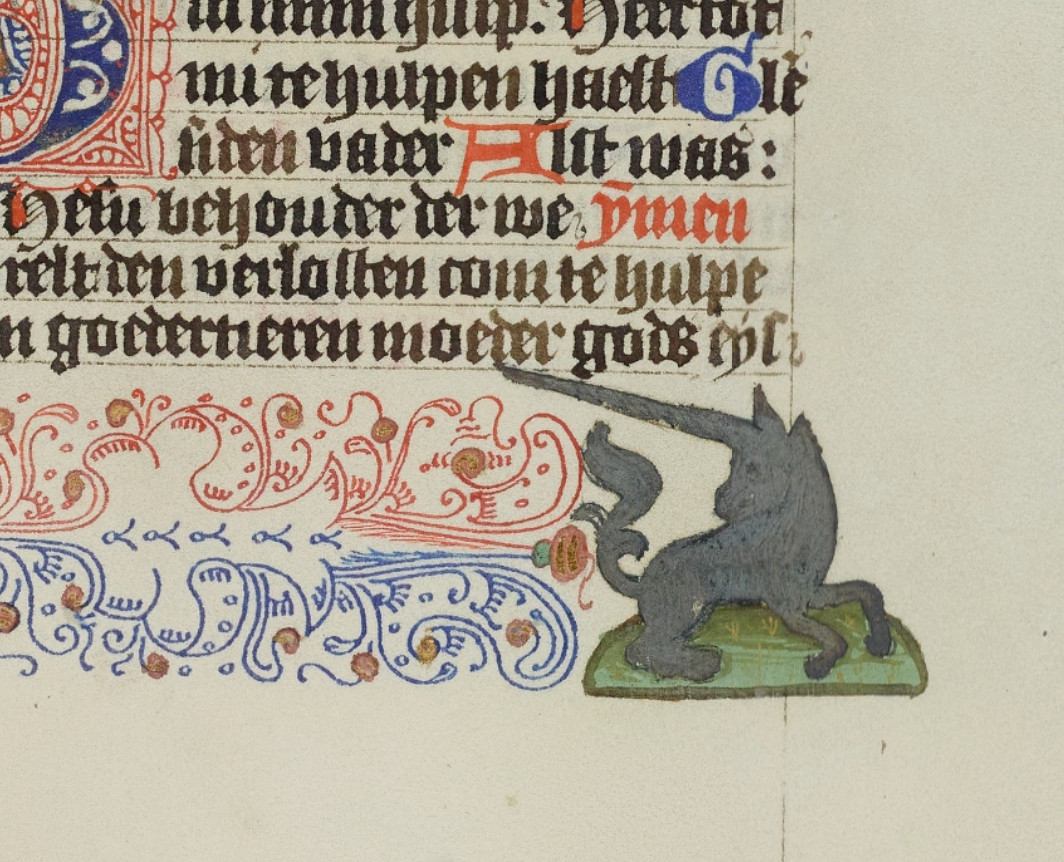 in mijn hulp. Heer tot
mi te hulpen haest Glē
si den vader Alst was:
Ihesu behouder der we ȳmen
relt: den verlosten com te hulpe
n goedertieren moeder gods eys